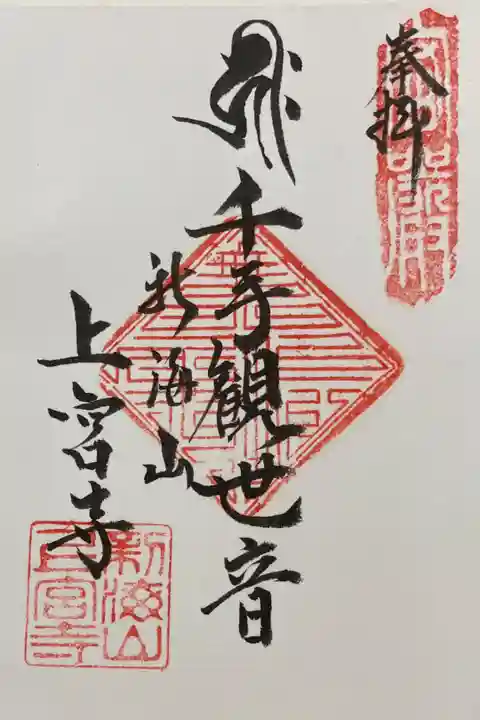 奉拝
千手観世音
新海山
上宮寺
新海山
上宮寺